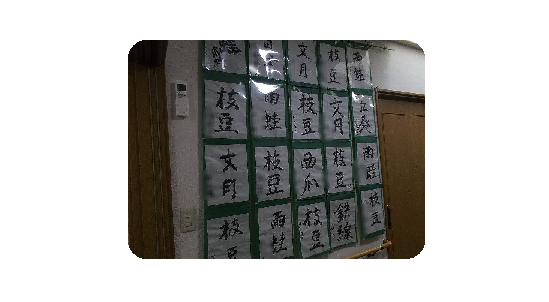 文月
枝豆
雨蛙
枝豆
雨蛙
枝豆
文月
文月
枝豆
西瓜
枝豆
雨蛙
枝豆
雨蛙
枝豆
枝豆